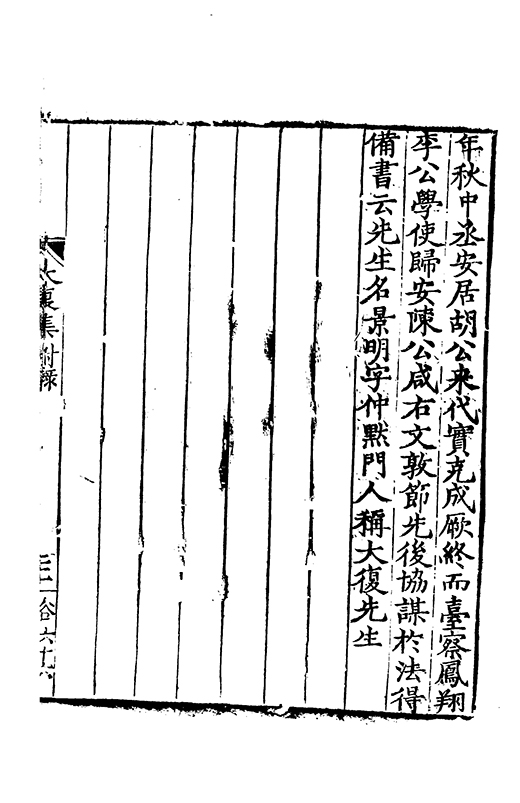 年秋中丞安居胡公來代實克成厥終而臺察鳳翔
李公學使歸安陳公咸右文敦節先後協謀於法得
備書云先生名景明字仲默門人稱大復先生
大復集附錄